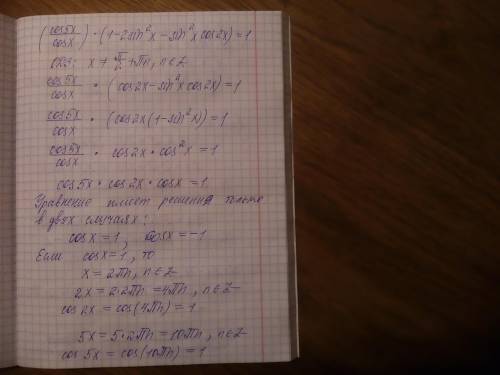 (cos5x/cosx) · (1-2sin²x-sin²x cos2x)=1
ОДЗ: x ≠ π/2 +πn, n∈Z
cos5x/cosx · (cos2x-sin²x cos2x)=1
cos5x/cosx · (cos2x(1-sin²x))=1
cos5x/cosx · cos2x · cos²x =1
cos5x · cos2x · cosx =1
Уравнение имеет решения только
в двух случаях:
cosx=1, cosx=-1
Если cosx=1, то
x=2πn, n∈Z
2x=2·2πn=4πn, n∈Z
cos2x=cos(4πn)=1
5x=5·2πn=10πn, n∈Z
cos5x=cos(10πn)=1